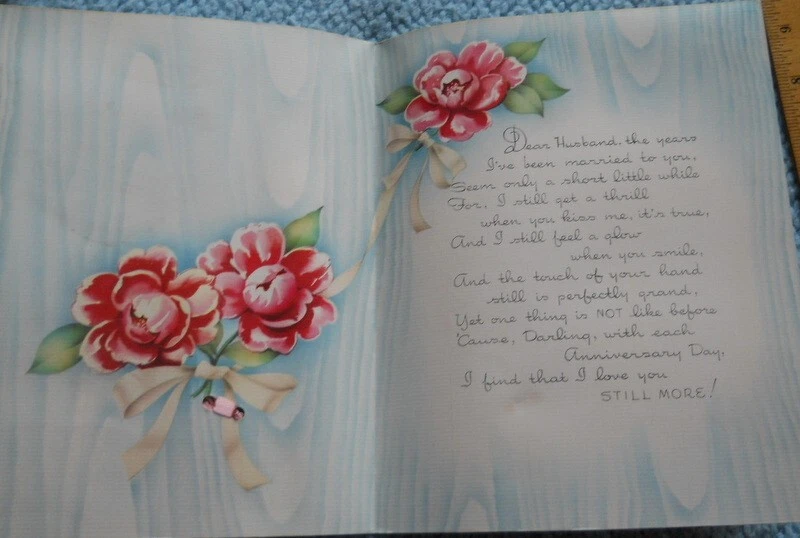 Dear Husband, the years
I've been married to you,
Seem only a short little while
For, I still get a thrill
when you kiss me, it's true,
And I still feel a glow
when you smile,
And the touch of your hand
still is perfectly grand,
Yet one thing is NOT like before
'Cause, Darling, with each
Anniversary Day,
I find that I love you
STILL MORE!
6
8